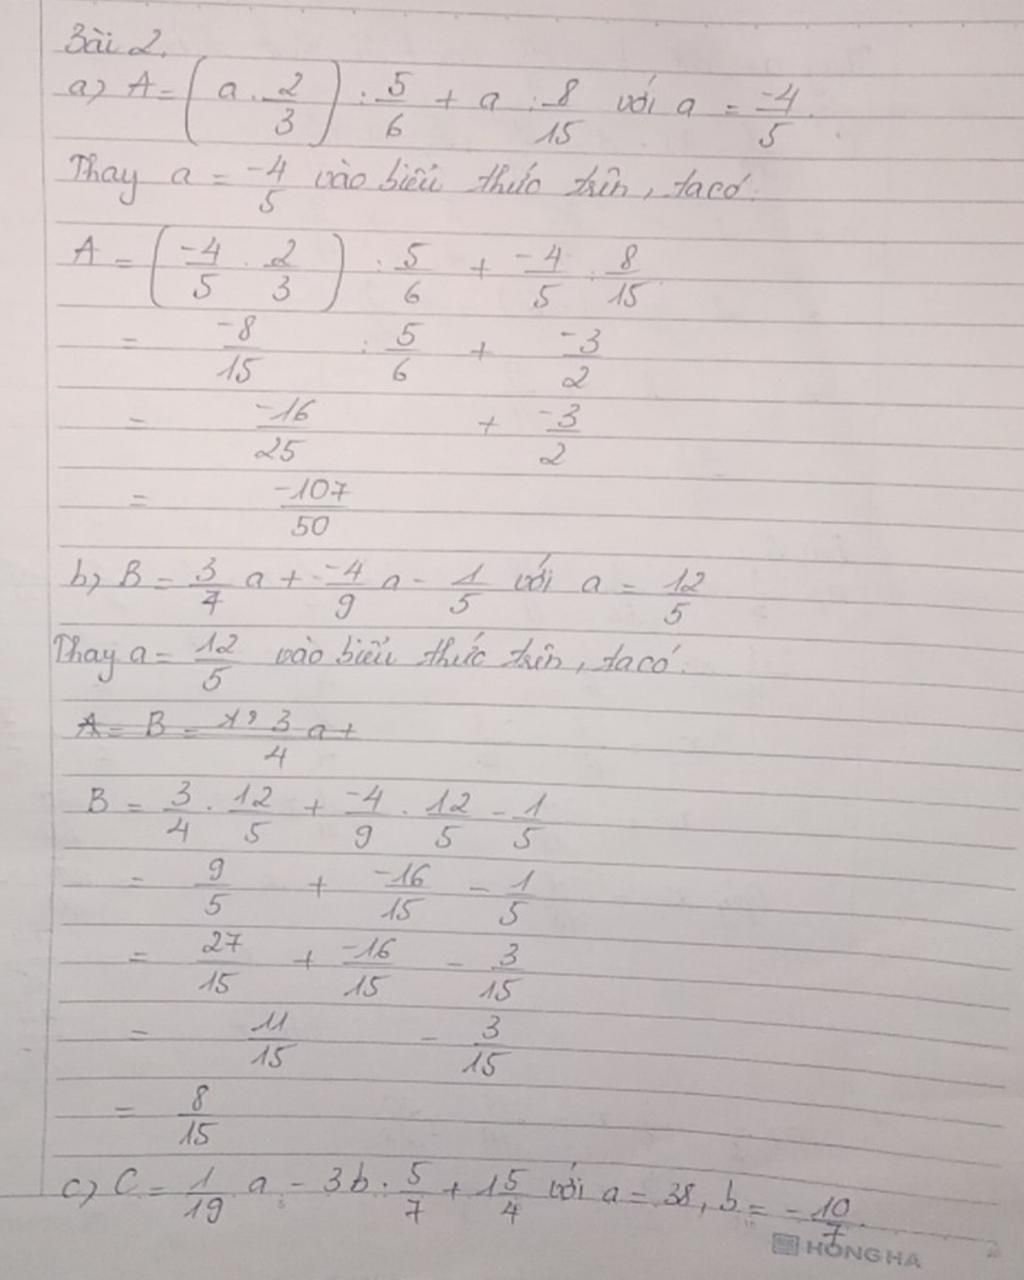 Bài 2.
a) A = (a . 2/3) : 5/6 + a : 8/15 với a = -4/5.
Thay a = -4/5 vào biểu thức trên, ta có:
A = (-4/5 . 2/3) : 5/6 + -4/5 : 8/15
= -8/15 : 5/6 + -3/2
= -16/25 + -3/2
= -107/50
b) B = 3/4 a + -4/9 a - 1/5 với a = 12/5
Thay a = 12/5 vào biểu thức trên, ta có:
A = B = 3/4 a +
B = 3/4 . 12/5 + -4/9 . 12/5 - 1/5
= 9/5 + -16/15 - 1/5
= 27/15 + -16/15 - 3/15
= 11/15 - 3/15
= 8/15
c) C = 1/19 a - 3b : 5/7 + 1 5/4 với a = 38, b = -10/7.
HONG HA